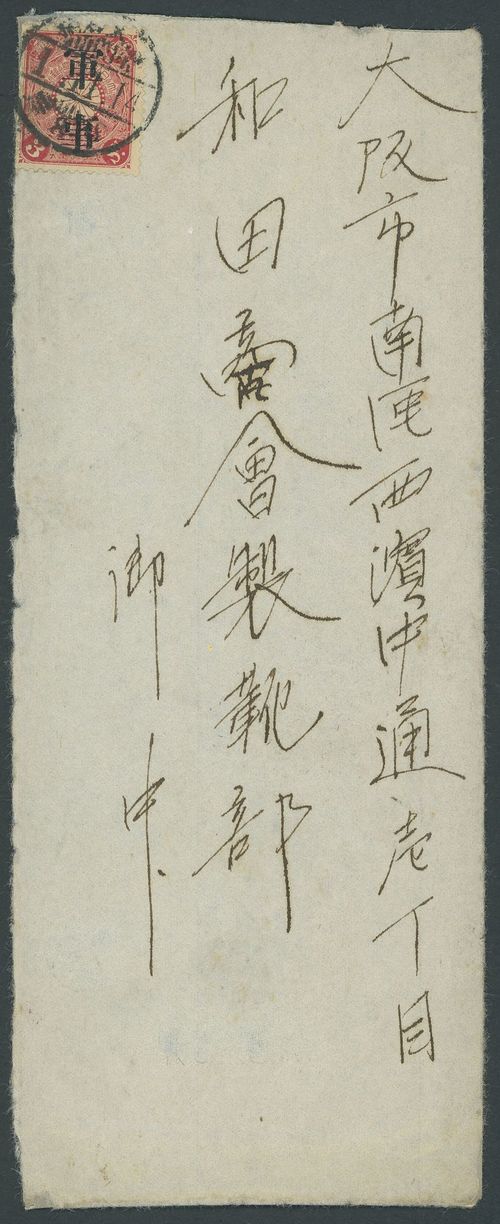 大阪市南區西濱中通壱丁目
和田商會製靴部
御中
軍事
3